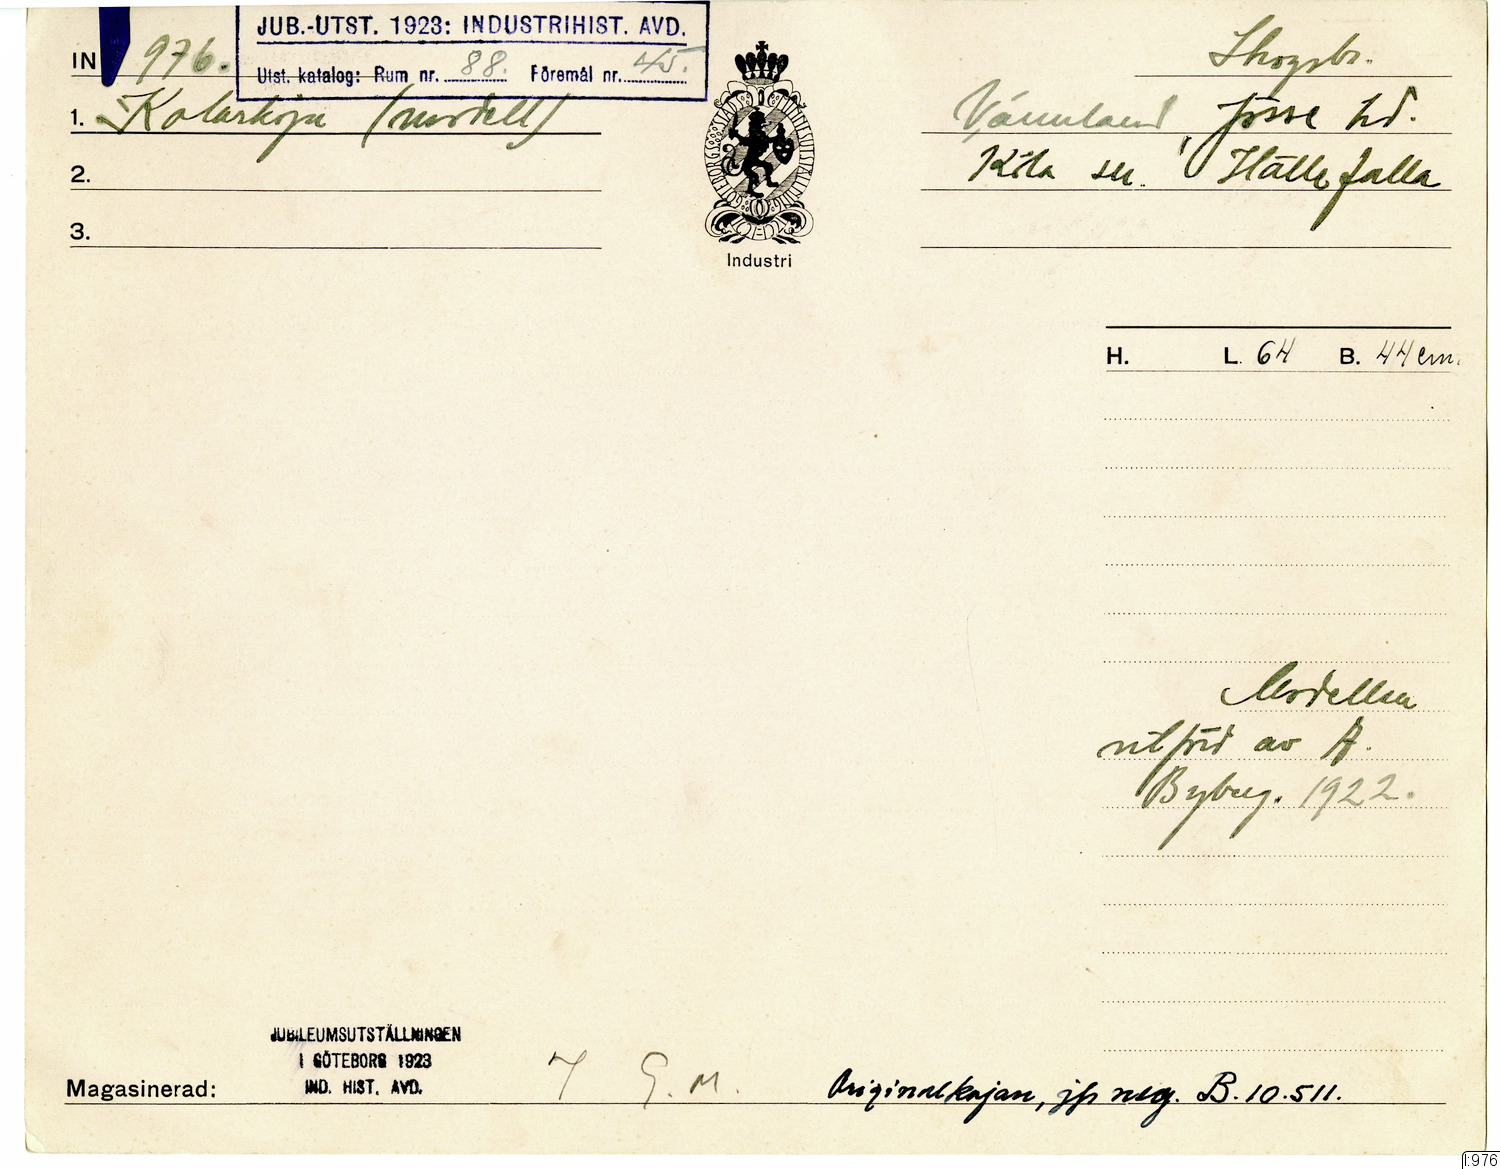 JUB.-UTST. 1923: INDUSTRIHIST. AVD.
Utst. katalog: Rum nr. 88. Föremål nr. 45.
IN 976.
1. Kolarkoja (modell)
2.
3.
GÖTEBORGS STADS JUBILEUMSUTSTÄLLNING
Industri
Skogsbr.
Värmland, Jösse hd.
Köla sn.
H. L. 64 B. 44 cm.
Modellen
utförd av A.
Byberg. 1922.
JUBILEUMSUTSTÄLLNINGEN
I GÖTEBORG 1923
IND. HIST. AVD.
Magasinerad: 7 G. M. Originalkojan, jfr neg. B. 10.511.
I:976